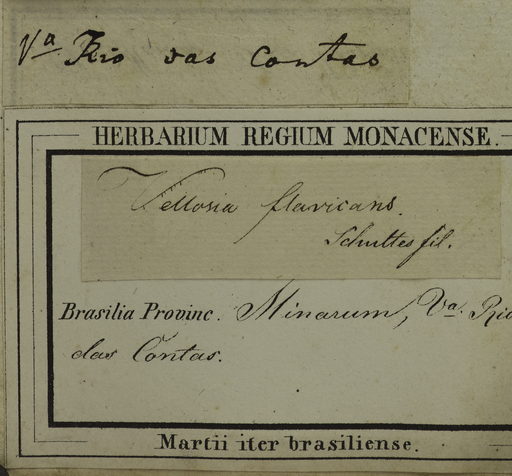 Va Rio das Contas
HERBARIUM REGIUM MONACENSE.
Vellosia flavicans.
Schultes fil.
Brasilia Provinc. Minarum, Va. Rio
das Contas.
Martii iter brasiliense.